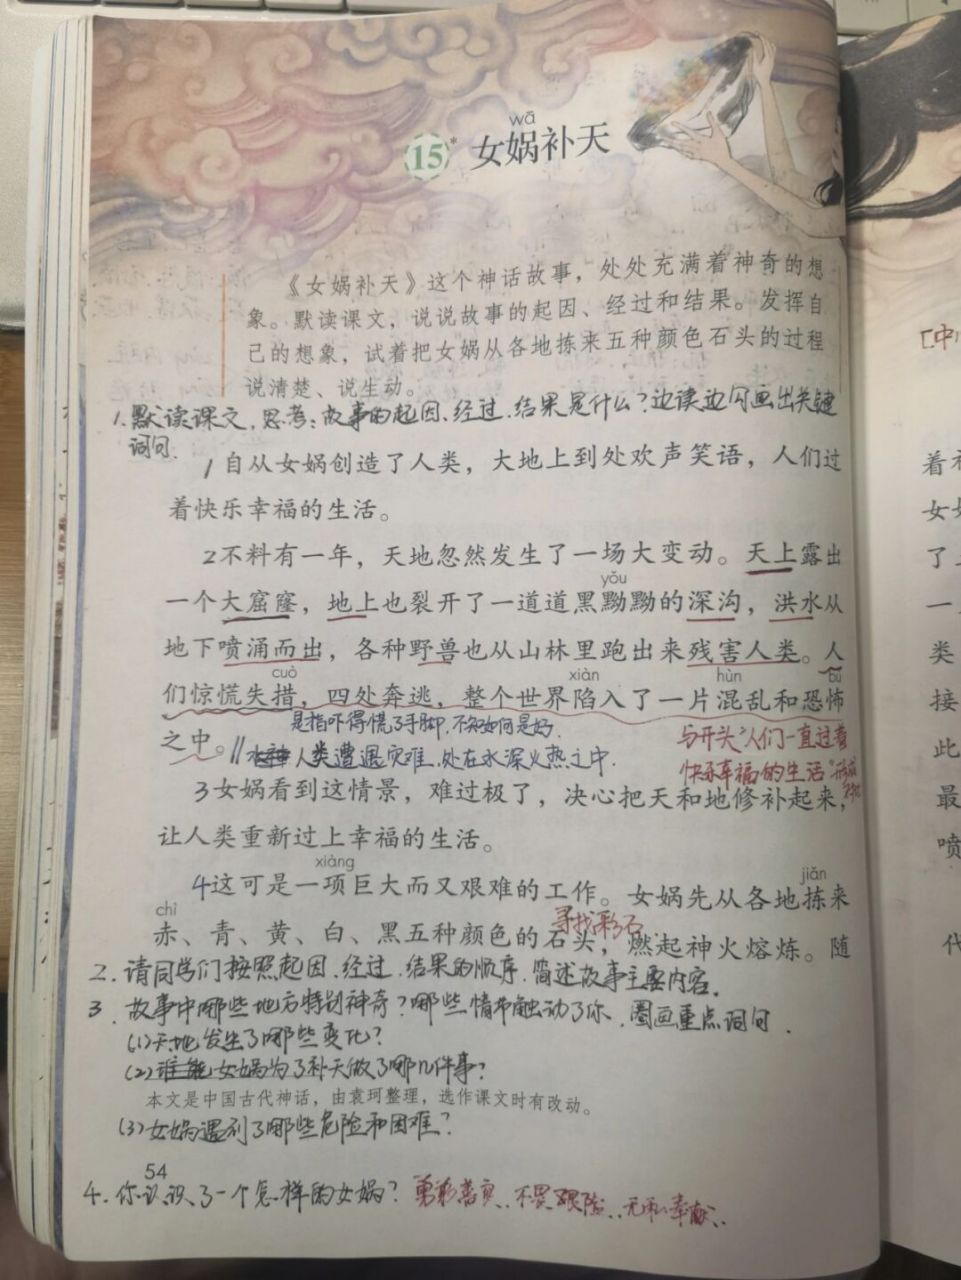 wā
15* 女娲补天
《女娲补天》这个神话故事，处处充满着神奇的想
象。默读课文，说说故事的起因、经过和结果。发挥自
己的想象，试着把女娲从各地拣来五种颜色石头的过程
说清楚、说生动。
1.默读课文，思考：故事的起因、经过、结果是什么？边读边勾画出关键
词句.
1自从女娲创造了人类，大地上到处欢声笑语，人们过
着快乐幸福的生活。
2不料有一年，天地忽然发生了一场大变动。天上露出
yǒu
一个大窟窿，地上也裂开了一道道黑黝黝的深沟，洪水从
地下喷涌而出，各种野兽也从山林里跑出来残害人类。人
cuò xiàn hùn bù
们惊慌失措，四处奔逃，整个世界陷入了一片混乱和恐怖
是指吓得慌了手脚，不知如何是好.
之中。
人类遭遇灾难，处在水深火热之中.
与开头"人们一直过着
快乐幸福的生活"形成
3女娲看到这情景，难过极了，决心把天和地修补起来，
让人类重新过上幸福的生活。
xiàng
4这可是一项巨大而又艰难的工作。女娲先从各地拣来
jiǎn
chì
寻找彩石
赤、青、黄、白、黑五种颜色的石头，燃起神火熔炼。随
2.请同学们按照起因、经过、结果的顺序，简述故事主要内容.
3.故事中哪些地方特别神奇？哪些情节触动了你，圈画重点词句.
(1)天地发生了哪些变化？
(2)谁能女娲为了补天做了哪几件事？
本文是中国古代神话，由袁珂整理，选作课文时有改动。
(3)女娲遇到了哪些危险和困难？
54
4.你认识了一个怎样的女娲？ 勇敢善良、不畏艰险、无私奉献.
[中
着
女
了
一
类
接
此
最
喷
代